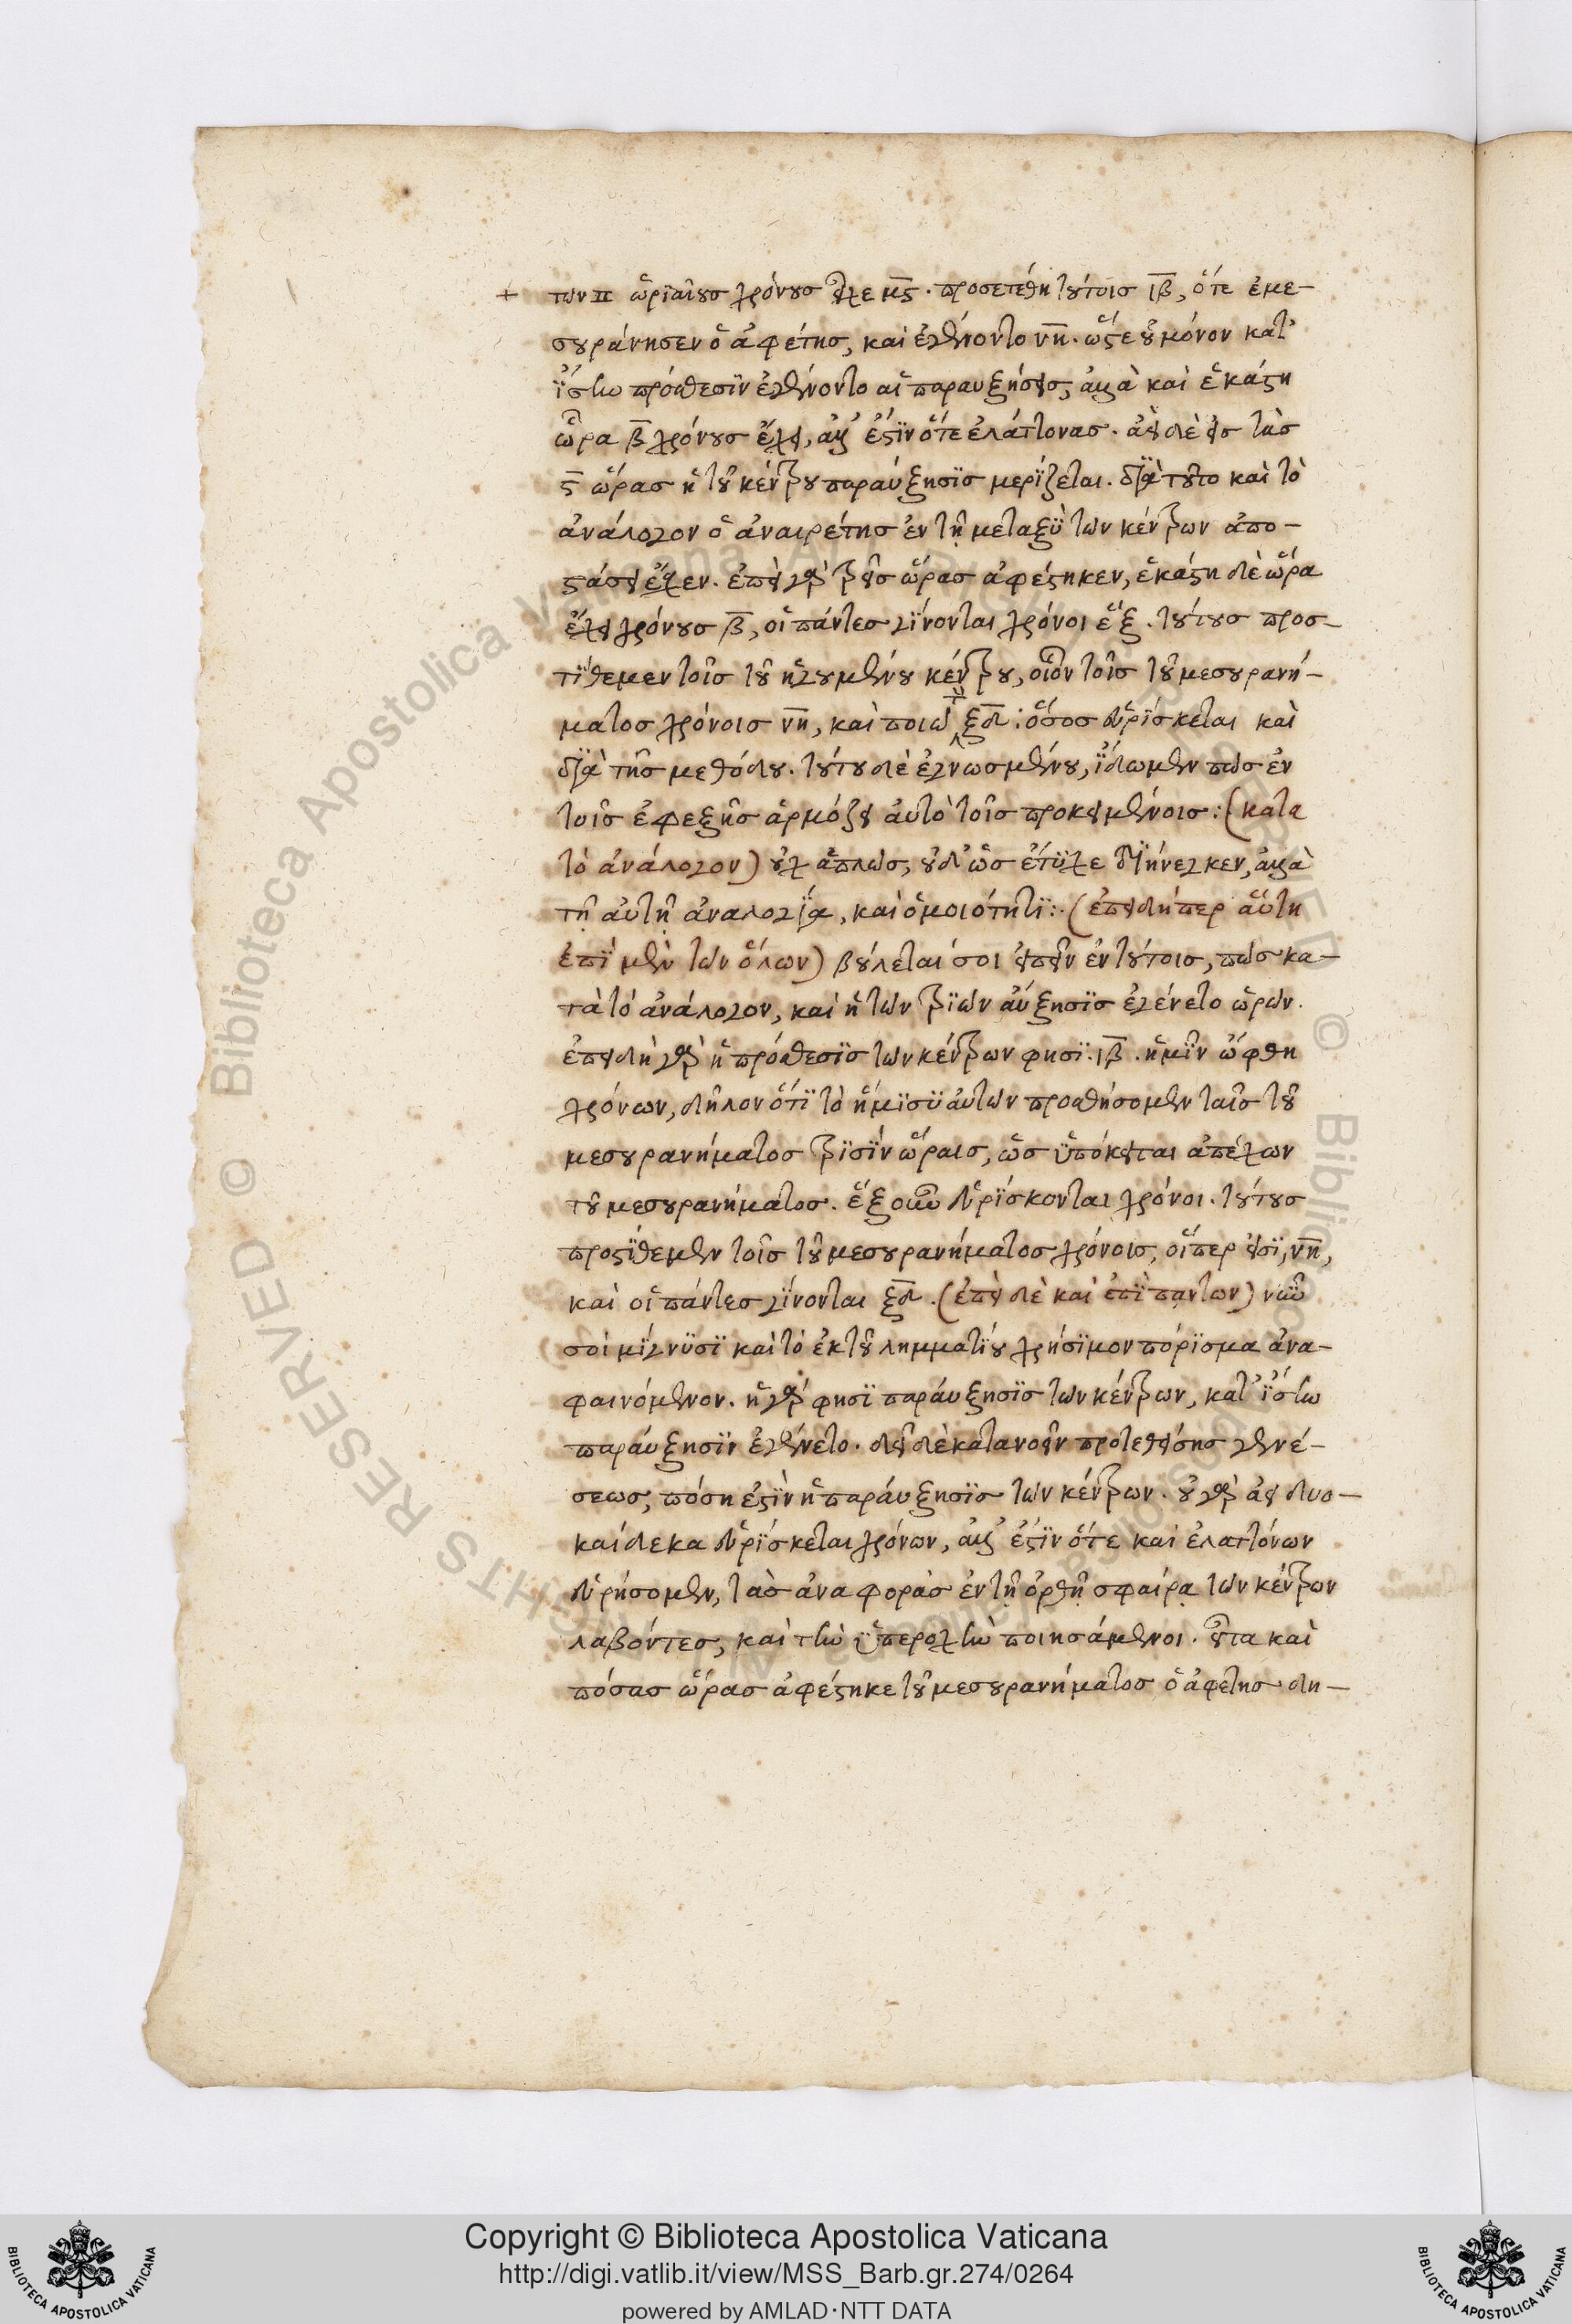 + των ♊ ὡριαίους χρόνους εἶχε μ̅ς̅. προσετέθη τούτοις ι̅β̅, ὅτε ἐμε-
σουράνησεν ὁ ἀφέτης, καὶ ἐγένοντο ν̅η̅. ὥστε οὐ μόνον κατ'
ἴσην πρόσθεσιν ἐγένοντο αἱ παραυξήσεις, ἀλλὰ καὶ ἑκάστη
ὥρα β̅ χρόνους ἔχει, ἀλλ' ἔστιν ὅτε ἐλάττονας. ἀεὶ δὲ εἰς τὰς
ς̅ ὥρας ἡ τοῦ κέντρου παραύξησις μερίζεται. διὰ τοῦτο καὶ τὸ
ἀνάλογον ὁ ἀναιρέτης ἐν τῇ μεταξὺ των κέντρων ἀπο-
στάσει ἔχεν. ἐπεὶ γὰρ τρεῖς ὥρας ἀφέστηκεν, ἑκάστη δὲ ὥρα
ἔχει χρόνους β̅, οἱ πάντες γίνονται χρόνοι ἕξ. τούτους προσ-
τίθεμεν τοῖς τοῦ ἡγουμένου κέντρου, οἷον τοῖς τοῦ μεσουρανή-
ματος χρόνοις ν̅η̅, καὶ ποιῶ ξ̅δ̅: ὅσος εὑρίσκεται καὶ
διὰ τῆς μεθόδου. τούτου δὲ ἐγνωσμένου, ἴδωμεν πῶς ἐν
τοῖς ἐφεξῆς ἁρμόζει αὐτὸ τοῖς προκειμένοις: (κατα
τὸ ἀνάλογον) οὐχ ἁπλῶς, οὐδ' ὡς ἔτυχε διήνεγκεν, ἀλλὰ
τῇ αὐτῇ ἀναλογίᾳ, καὶ ὁμοιότητι:. (ἐπειδήπερ αὕτη
ἐπὶ μὲν τῶν ὅλων) βούλεταί σοι εἰπεῖν ἐν τούτοις, πῶς κα-
τὰ τὸ ἀνάλογον, καὶ ἡ τῶν τριῶν αὔξησις ἐγένετο ὡρῶν.
ἐπειδὴ γὰρ ἡ πρόσθεσις των κέντρων φησὶ. ι̅β̅. ἡμῖν ὤφθη
χρόνων, δῆλον ὅτι τὸ ἥμισυ αὐτῶν προσθήσομεν ταῖς τοῦ
μεσουρανήματος τρισὶν ὥραις, ὡς ὑπόκειται ἀπέχων
τοῦ μεσουρανήματος. ἓξ οὖν εὑρίσκονται χρόνοι. τούτους
προστίθεμεν τοῖς τοῦ μεσουρανήματος χρόνοις, οἵπερ εἰσὶ, ν̅η̅,
καὶ οἱ πάντες γίνονται ξ̅δ̅. (ἐπεὶ δὲ καὶ ἐπὶ παντων) νῦν
σοι μίγνυσι καὶ τὸ ἐκ τοῦ λημματίου χρήσιμον πόρισμα ἀνα-
φαινόμενον. ἡ γάρ φησι παραύξησις των κέντρων, κατ' ἴσην
παραύξησιν ἐγένετο. δεῖ δὲ κατανοεῖν προτεθείσης γενέ-
σεως, πόση ἐστὶν ἡ παραύξησις τῶν κέντρων. οὐ γὰρ ἀεὶ δυο-
καίδεκα εὑρίσκεται χρόνων, ἀλλ' ἔστιν ὅτε καὶ ἐλαττόνων
εὑρήσομεν, τὰς ἀναφορὰς ἐν τῇ ὀρθῇ σφαίρᾳ τῶν κέντρων
λαβόντες, καὶ τὴν ὑπεροχὴν ποιησάμενοι. εἶτα καὶ
πόσας ὥρας ἀφέστηκε τοῦ μεσουρανήματος ὁ ἀφέτης δη-
Copyright © Biblioteca Apostolica Vaticana
http://digi.vatlib.it/view/MSS_Barb.gr.274/0264
powered by AMLAD·NTT DATA
BIBLIOTECA APOSTOLICA VATICANA
BIBLIOTECA APOSTOLICA VATICANA